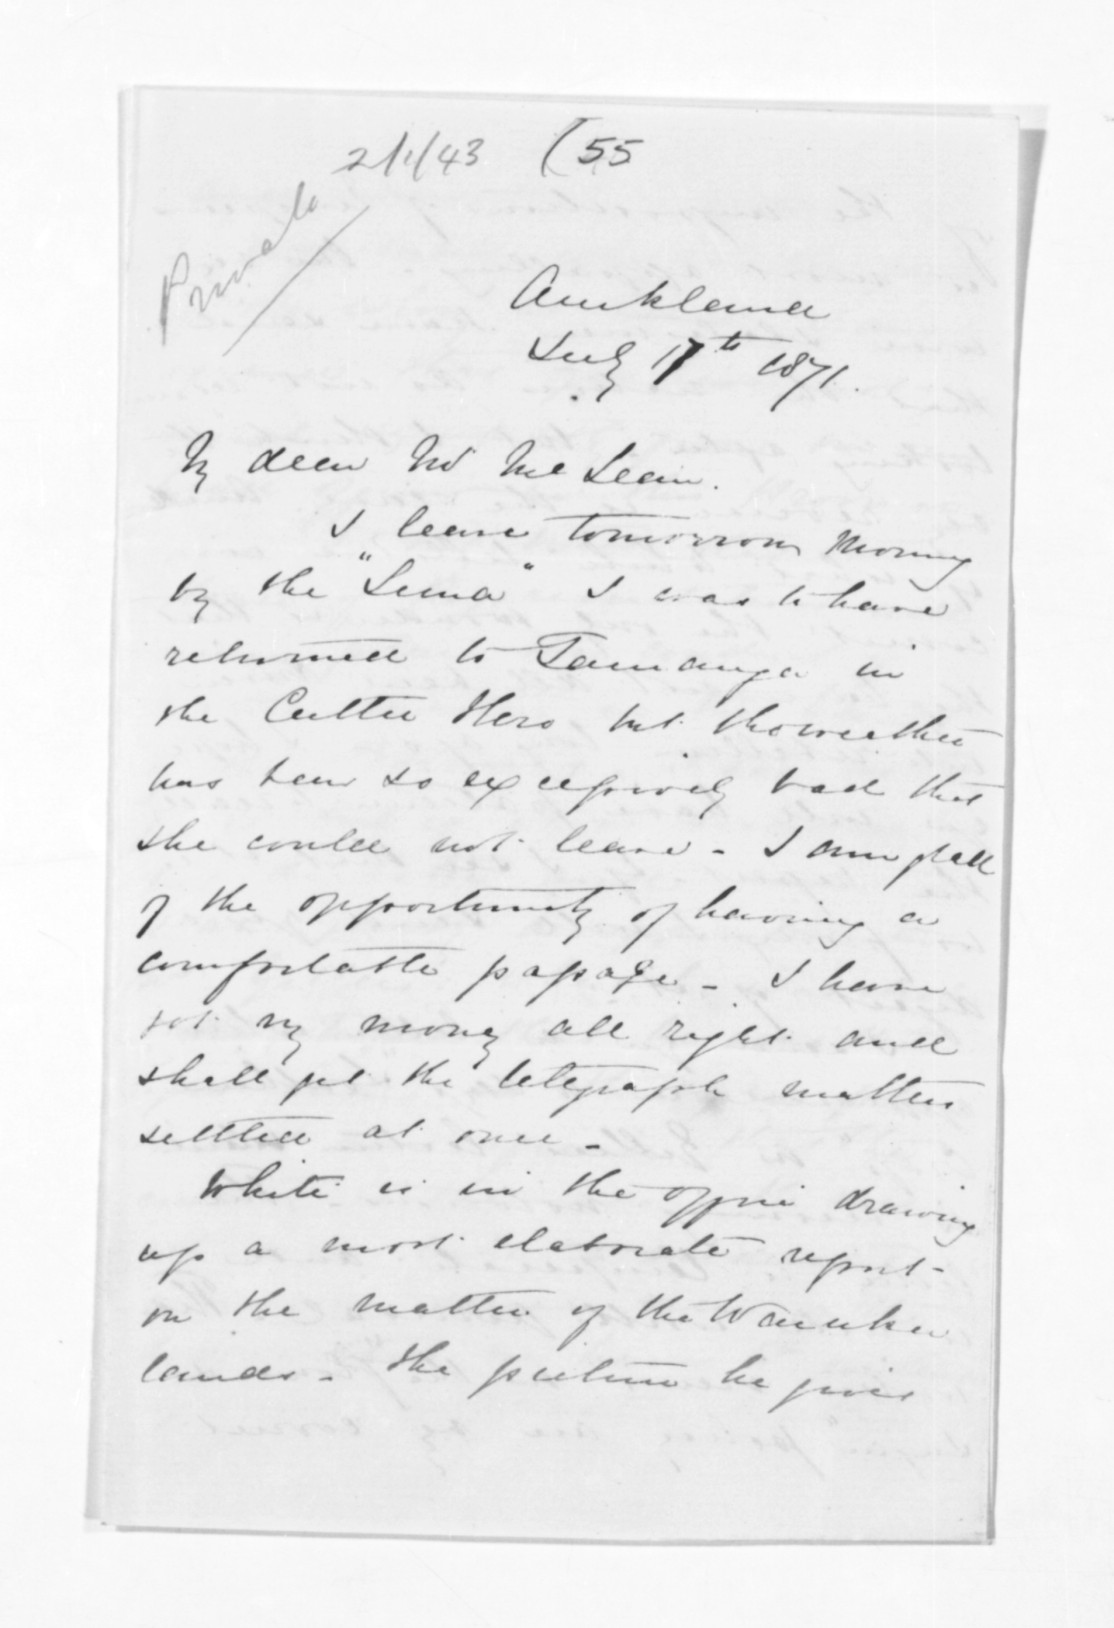 2/1/43 (55
Private
Auckland
July 17th 1871.
My dear Mr McLean.
I leave tomorrow morning
by the "Luna" I was to have
returned to Tauranga in
the Cutter Hero but the weather
has been so excessively bad that
she could not leave - I am glad
of the opportunity of having a
comfortable passage - I have
got my money all right and
shall get the telegraph matters
settled at once -
White is in the office drawing
up a most elaborate report
on the matter of the
lands - the picture he gives